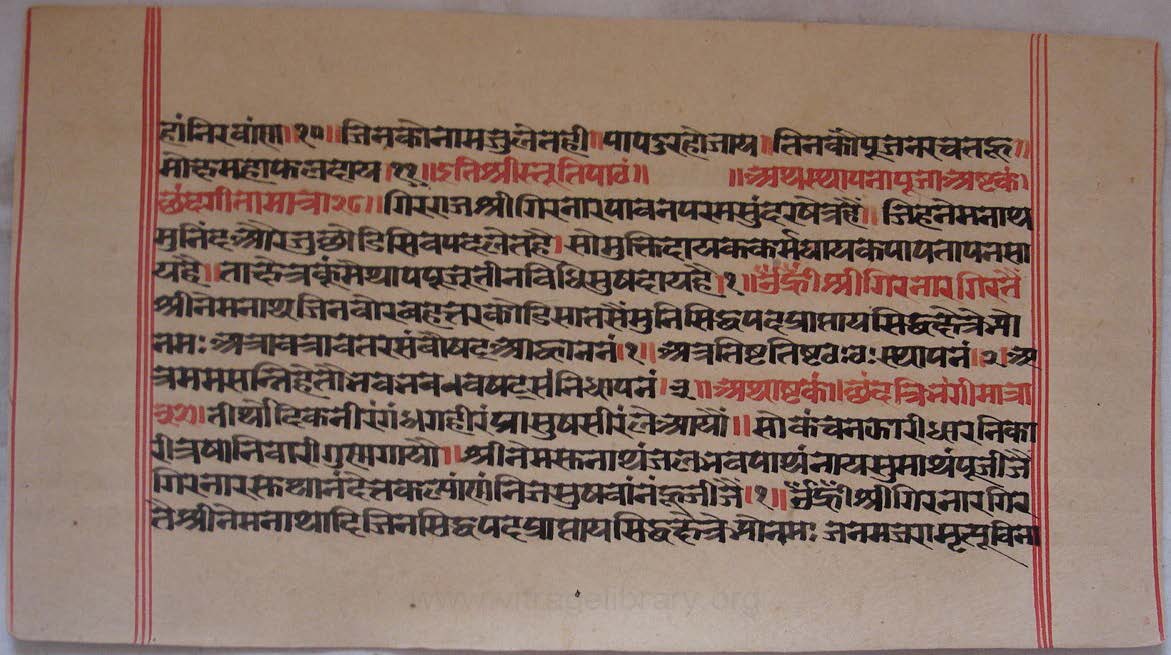 हांनिरवांण॥१०॥जिनकोनामजुलेतही॥पापडुरहोजाय॥तिनकौंपूजनरचनह्र॥
मोक्षमहाफलदाय।११॥इतिश्रीस्तूतिपाठं॥ ॥अथस्थापनापूजाअष्टकं।
छंदगीतामात्रा२८॥गिरराजश्रीगिरनारपावनपरमसुंदरषेत्रहैं॥जिहनेमनाथ
मुनिंदऔरजुछोडिसिवपदलेतहै।सोमुक्तिदायककर्मघायकपापतापनसा
यहै॥ताक्षेत्रकूंमैथापपूजूतीनविधिसुषदायहै।१॥ॐह्रींश्रीगिरनारगिरतैं
श्रीनेमनाथजिनवौरवहत्तरकोडिसातसैंमुनिसिद्धपदप्राप्तायसिद्धक्षेत्रेभ्यो
नमःअत्रावत्रावेतरसंवौषटआह्वाननं।१॥अत्रतिष्टतिष्टठःठःस्थापनं।२।अ
त्रममसन्तिहेतौभवभवबधवषट्संनिधापनं।३॥अथाष्टकं॥छंदत्रिभंगीमात्रा
३२।तीर्थोदिकनीरंगंधगहीरंप्रासुषसीरंलेआयौं॥सोकंचनझारीधारनिका
रीत्रषानिवारीगुणगायौ॥श्रीनेमस्तनाथंजलभवपाथंनायसुमाथंपूजीजै
गिरनारस्तथानंदेतकल्यांणंनिजसुषवांनंह्रजीजैं।१॥ॐह्रींश्रीगिरनारगिर
तैश्रीनेमनाथादिजिनसिद्धपदप्राप्तायसिद्धक्षेत्रेभ्योनमःजनमजरामृत्यूविना
www.vitragelibrary.org